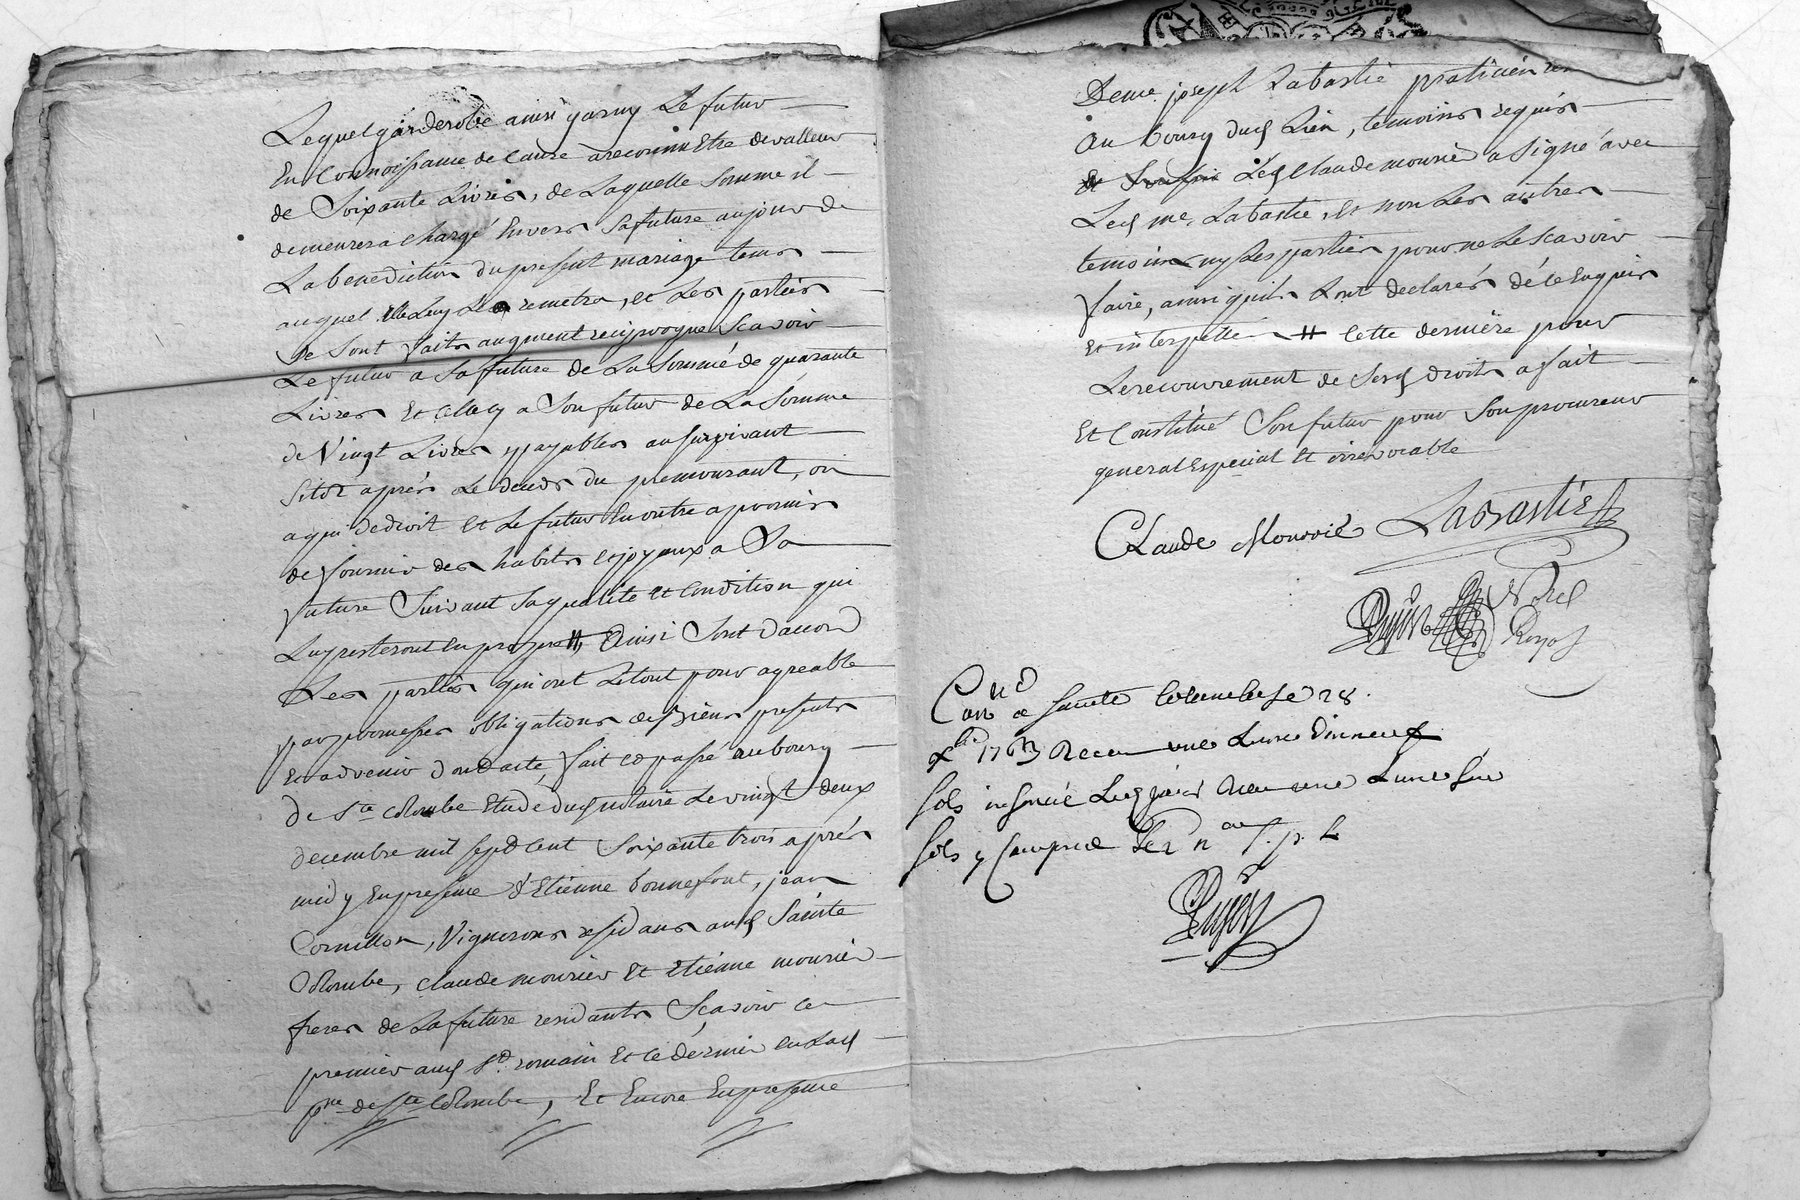 Lequel garderobe ainsi garny Le futur
En Connoissance de Cause a reconnu Etre de valleur
de Soixante Livres, de Laquelle Somme il
demeurera chargé Envers Sa future au jour de
La benediction du present mariage tems
auquel Elle Luy Le remetra, et Les parties
Se Sont fait augment reciproque Scavoir
Le futur a Sa future de La Somme de quarante
Livres Et celle cy a Son futur de La Somme
de Vingt Livres payables au Survivant
Sitot aprés Le deceds du premourant, ou
a qui de droit et Le futur En outre a promis
de fournir des habits et joyaux a Sa
future Suivant Sa qualité et Condition qui
Luy resteront En propre # Ainsi Sont d'accord
Les parties qui ont Le tout pour agreable
par promesses obligations de Biens presents
Et advenir dont acte, fait et passé au bourg
De Ste Colombe Etude dud notaire Le vingt deux
decembre mil sept Cent Soixante trois aprés
midy En presence d'Etienne bonnefont, jean
Cornillon, Vignerons residans aud Sainte
Colombe, claude mourier Et Etienne mourier
freres de La future residants Scavoir ce
premier aud St. romain Et ce dernier En Lad
pne de Ste Colombe, Et Encore En presence
De me joseph Labastie praticien
au bourg dud Lieu, temoins requis
Led Claude mourier a Signé avec
Led me. Labastie, Et non Les autres
temoins ny Les parties pour ne Le Scavoir
faire, ainsi quils L'ont declarés de ce Enquis
Et interpellé # Cette derniere pour
Le recouvrement de Sesd droits a fait
Et Constitué Son futur pour Son procureur
general Especial Et irrevocable
Claude Mourrié Labastie
Con a Sainte Colombe Le 28
1763 Recu une Livre dix neuf
Sols insinué Led jour Recu une Livre Six
Sols y Compris Les